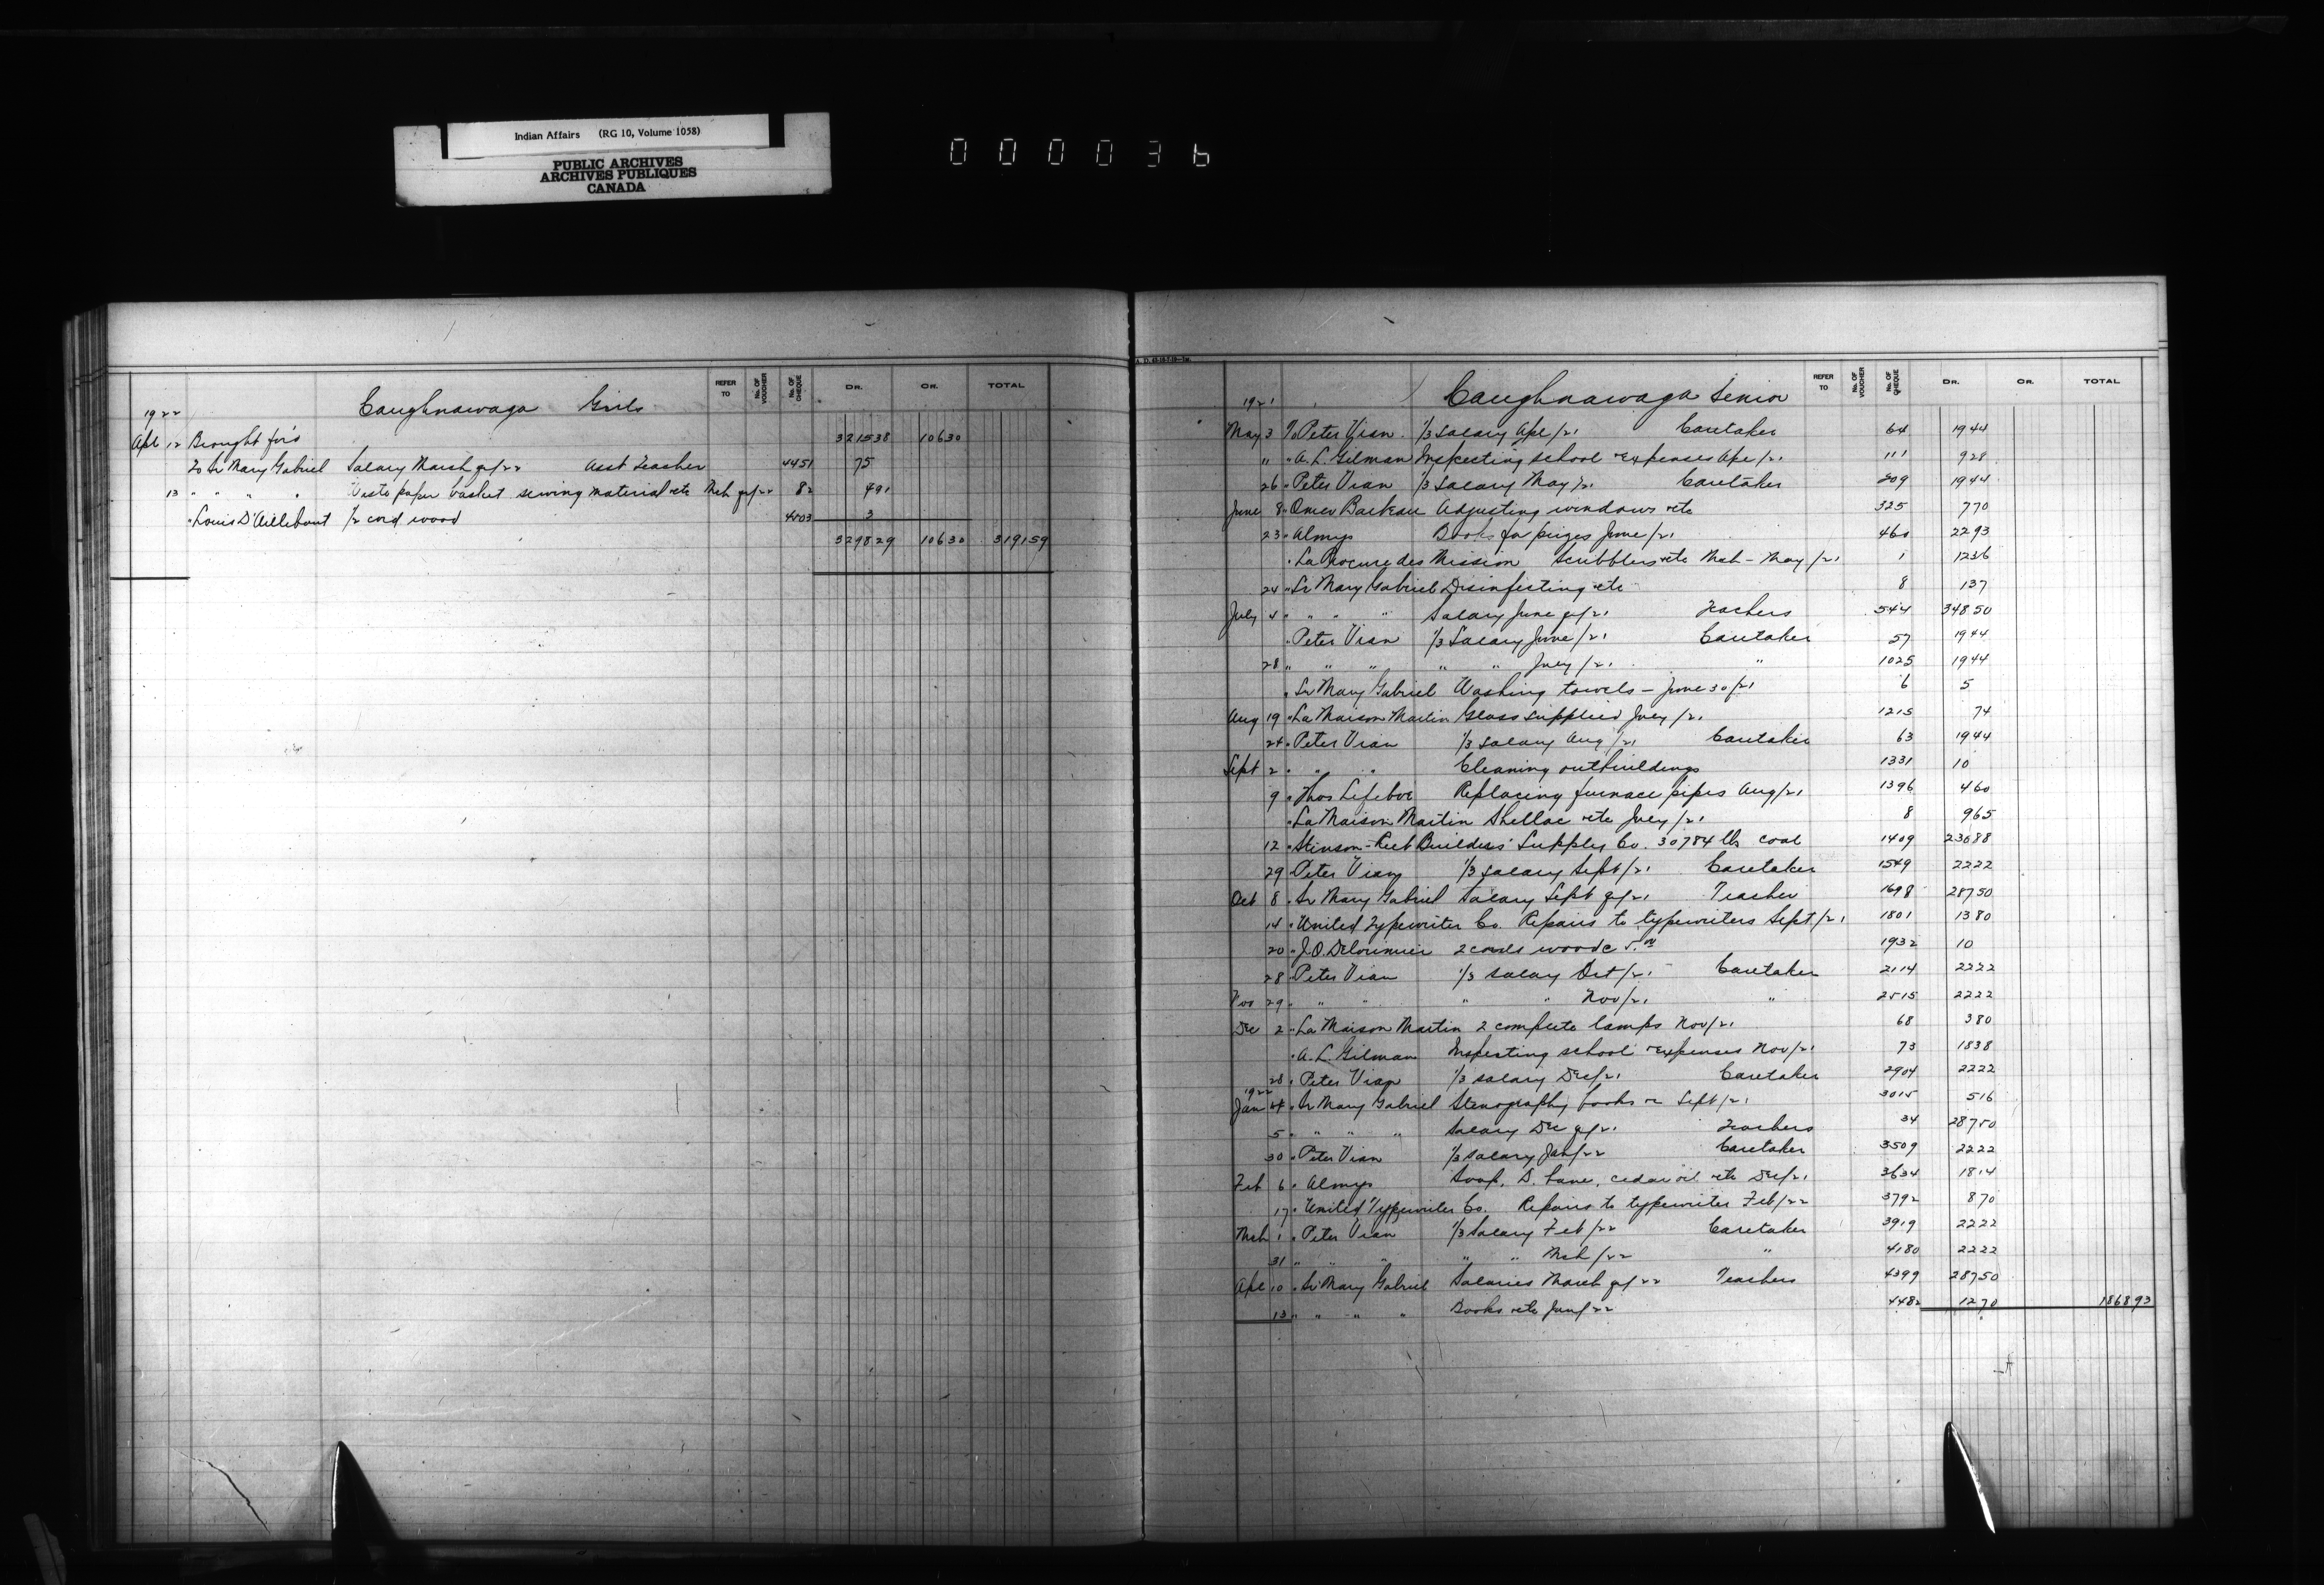 Indian Affairs (RG 10, Volume 1058)
PUBLIC ARCHIVES
ARCHIVES PUBLIQUES
CANADA
000036
REFER TO No. OF VOUCHER No. OF CHEQUE DR. CR. TOTAL
1922 Caughnawaga Girls
Apl 12 Brought for'd 321538 10630
To Sr Mary Gabriel Salary March qr/22 Asst Teacher 4451 75
13 " " " " Waste paper basket sewing material etc Mch qr/22 82 491
" Louis D'Aillebout 1/2 cord wood 4503 3
329829 10630 319159
REFER TO No. OF VOUCHER No. OF CHEQUE DR. CR. TOTAL
1921 Caughnawaga Senior
May 3 To Peter Vian 1/3 Salary Apl/21 Caretaker 64 1944
" " A. L. Gilman Inspecting school expenses Apl/21 111 928
26 " Peter Vian 1/3 Salary May/21 Caretaker 209 1944
June 8 " Omer Adjusting windows etc 325 770
23 " Almys Books for prizes June/21 460 2293
" La Procure des Mission Scribblers etc Mch - May/21 1 1236
24 " Sr Mary Gabriel Disinfecting etc 8 137
July 4 " " " " Salary June qr/21 Teachers 544 34850
" Peter Vian 1/3 Salary June/21 Caretaker 57 1944
28 " " " " " July/21 " 1025 1944
" Sr Mary Gabriel Washing towels - June 30/21 6 5
Aug 19 " La Maison Martin Glass supplied July/21 1215 74
24 " Peter Vian 1/3 Salary Aug/21 Caretaker 63 1944
Sept 2 " " " Cleaning outbuildings 1331 10
9 " Thos Lefebvre Replacing furnace pipes Aug/21 1396 460
" La Maison Martin Shellac etc July/21 8 965
12 " Stinson-Reeb Builders' Supply Co. 30784 lbs coal 1409 23688
29 " Peter Vian 1/3 Salary Sept/21 Caretaker 1549 2222
Oct 8 " Sr Mary Gabriel Salary Sept qr/21 Teacher 1698 28750
14 " United Typewriter Co. Repairs to typewriters Sept/21 1801 1380
20 " J. O. Delorimier 2 cords wood @ 5.00 1932 10
28 " Peter Vian 1/3 Salary Oct/21 Caretaker 2114 2222
Nov 29 " " " " " Nov/21 " 2515 2222
Dec 2 " La Maison Martin 2 complete lamps Nov/21 68 380
" A. L. Gilman Inspecting school expenses Nov/21 73 1838
28 " Peter Vian 1/3 Salary Dec/21 Caretaker 2904 2222
1922
Jan 4 " Sr Mary Gabriel Stenography books Sept/21 3015 516
5 " " " " Salary Dec qr/21 Teachers 34 28750
30 " Peter Vian 1/3 Salary Jan/22 Caretaker 3509 2222
Feb 6 " Almys Soap, cedar oil etc Dec/21 3634 1814
17 " United Typewriter Co. Repairs to typewriter Feb/22 3792 870
Mch 1 " Peter Vian 1/3 Salary Feb/22 Caretaker 3919 2222
31 " " " " " Mch/22 " 4180 2222
Apl 10 " Sr Mary Gabriel Salaries March qr/22 Teachers 4399 28750
13 " " " " Books etc Jan/22 4482 1270 186893